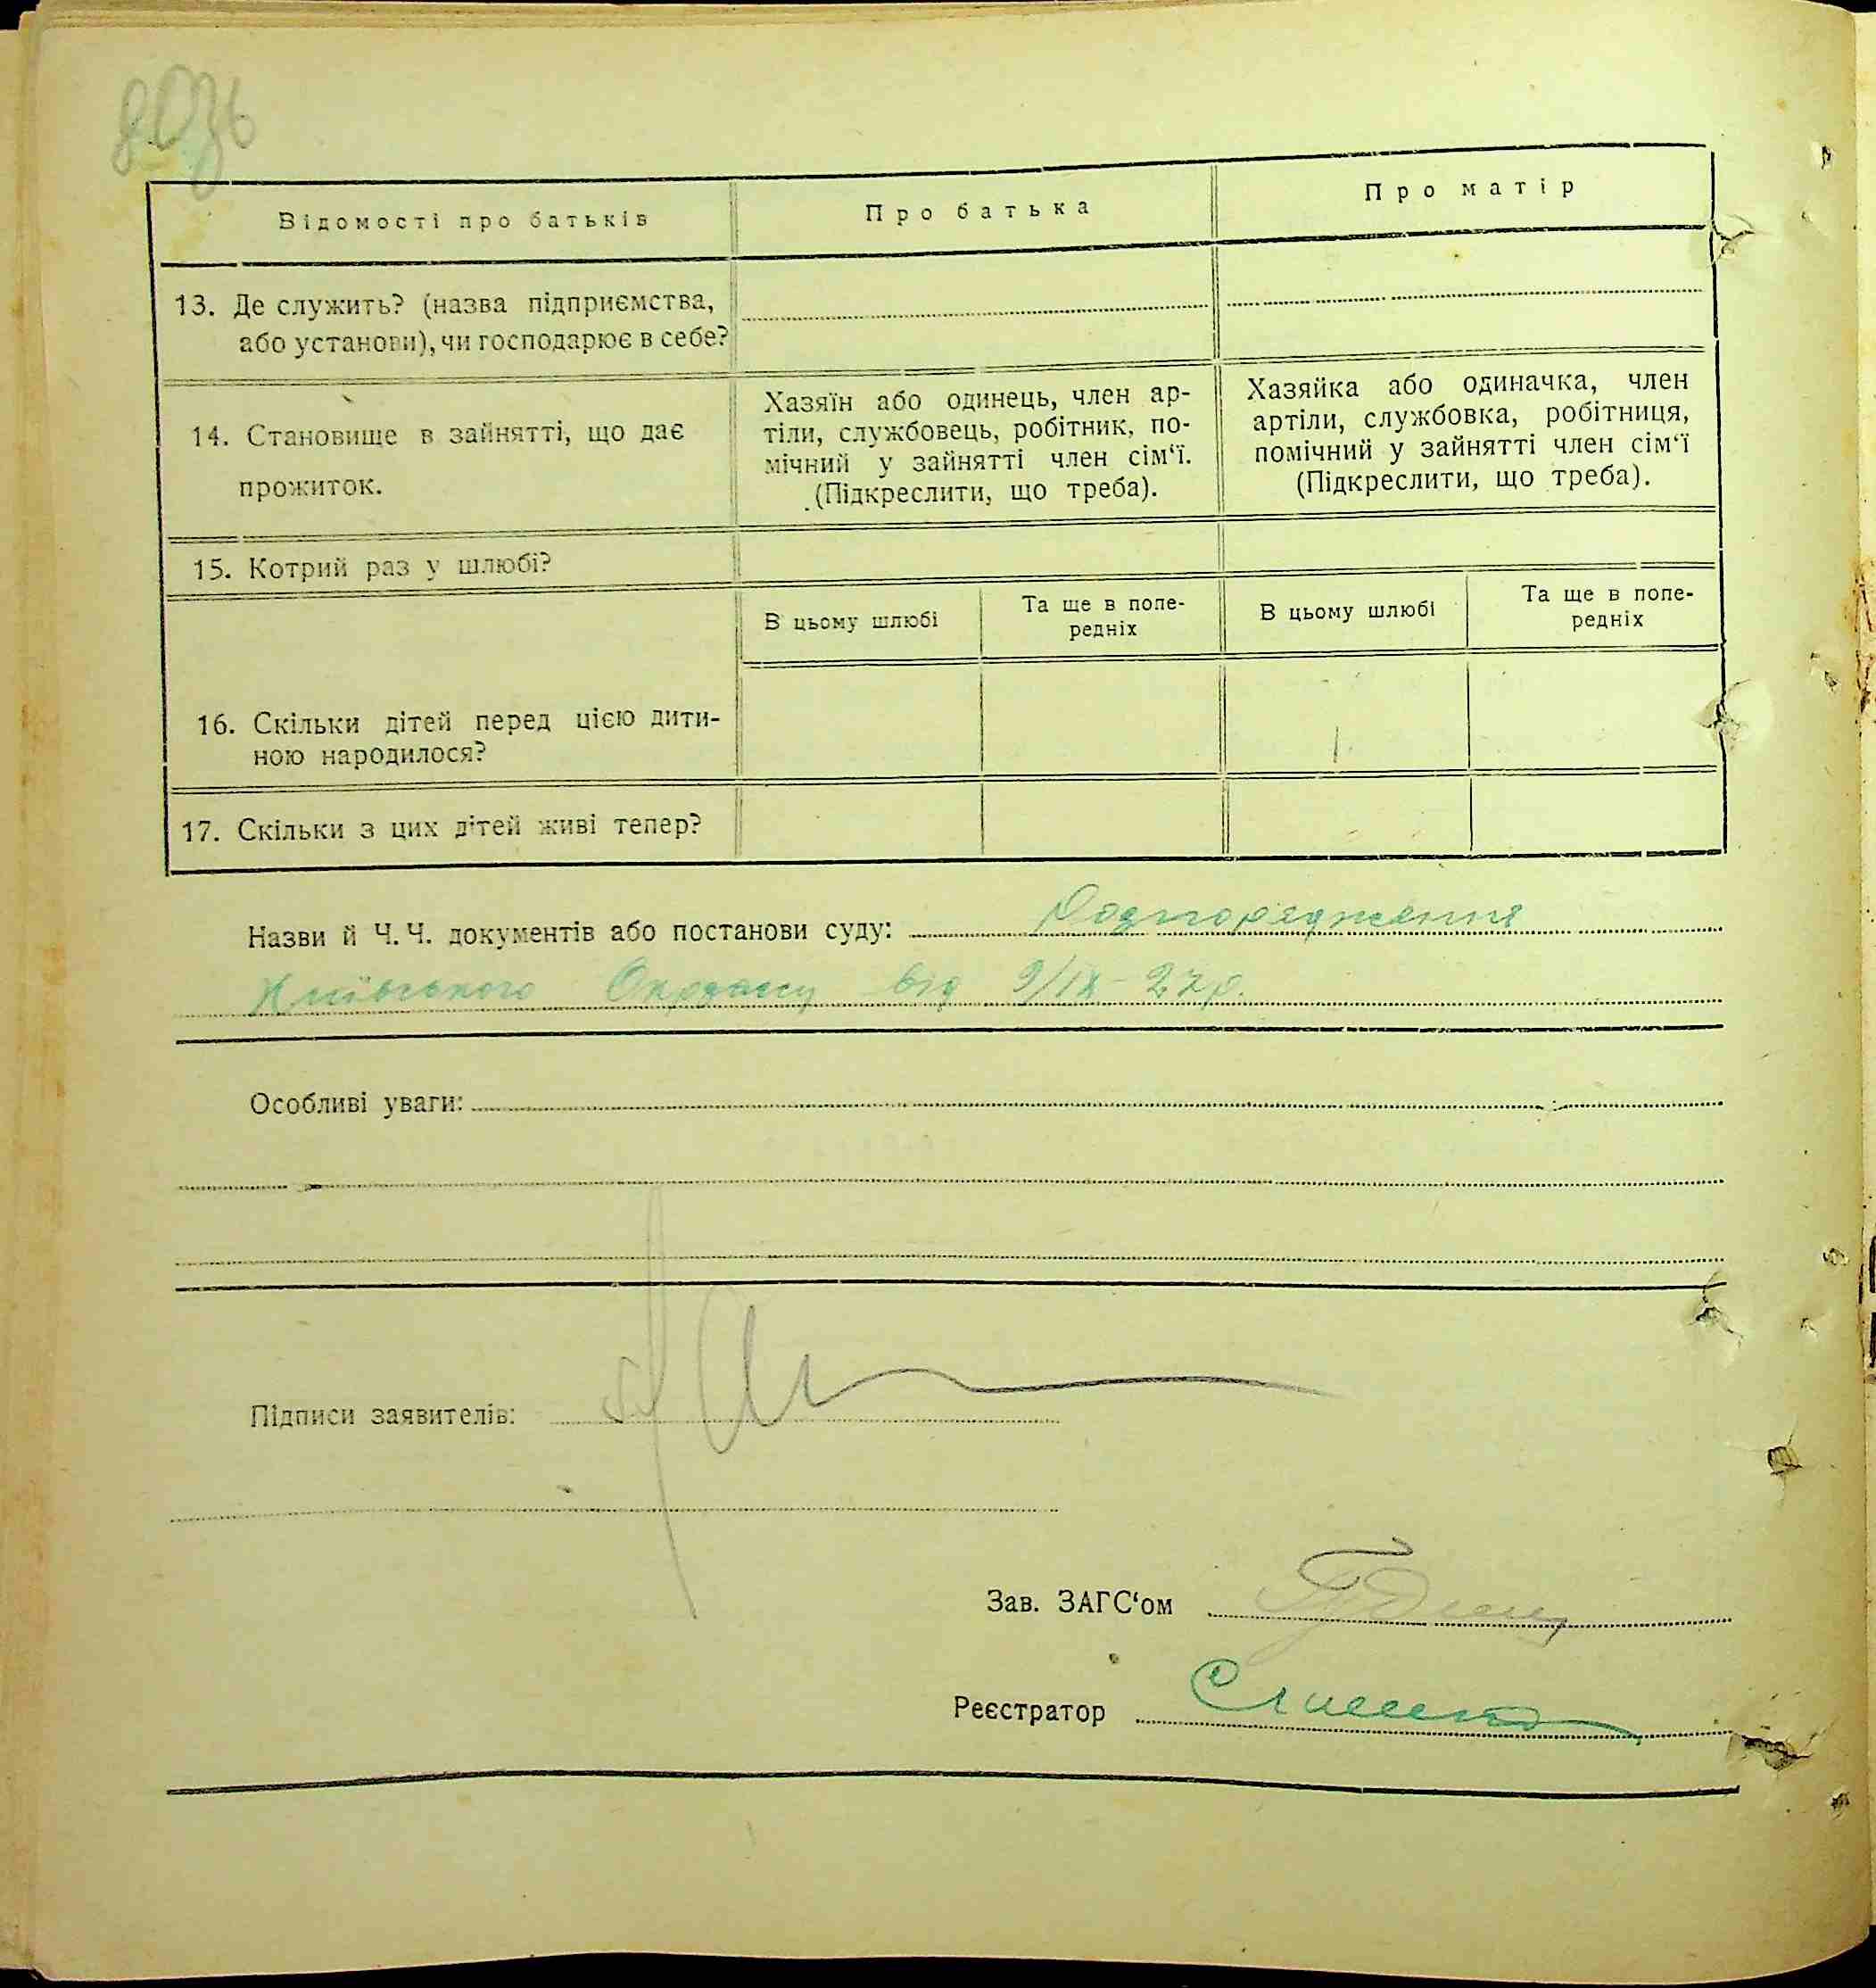 Відомості про батьків
Про батька
Про матір
13. Де служить? (назва підприємства,
або установи), чи господарює в себе?
14. Становище в зайнятті, що дає
прожиток.
Хазяїн або одинець, член ар-
тіли, службовець, робітник, по-
мічний у зайнятті член сім‘ї.
(Підкреслити, що треба).
Хазяйка або одиначка, член
артіли, службовка, робітниця,
помічний у зайнятті член сім‘ї
(Підкреслити, що треба).
15. Котрий раз у шлюбі?
В цьому шлюбі
Та ще в попе-
редніх
В цьому шлюбі
Та ще в попе-
редніх
16. Скільки дітей перед цією дити-
ною народилося?
17. Скільки з цих дітей живі тепер?
Назви й Ч. Ч. документів або постанови суду: Розпорядження
Київського від 9/IX-27р.
Особливі уваги:
Підписи заявителів:
Зав. ЗАГС‘ом
Реєстратор